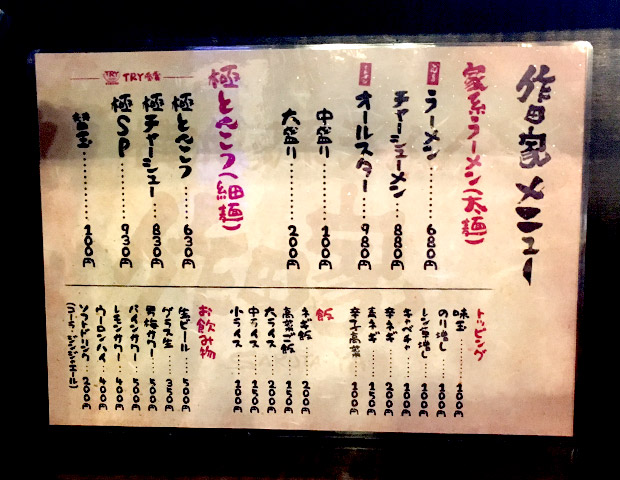 作田家メニュー
家系ラーメン(太麺)
ラーメン…………680円
チャーシューメン……880円
オールスター………980円
中盛り…………100円
大盛り…………200円
極とんこつ(細麺)
TRY
TRY
極とんこつ………630円
極チャーシュー……830円
極SP…………930円
替玉…………100円
トッピング
味玉…………100円
のり増し………100円
キャベチャ………100円
辛ネギ…………200円
辛子高菜………100円
飯
ネギ飯…………200円
高菜ご飯………150円
大ライス………200円
中ライス………150円
小ライス………100円
お飲み物
生ビール………500円
グラス生………350円
男梅サワー………500円
パインサワー………500円
レモンサワー………400円
ウーロンハイ………400円
ソフトドリンク………200円
(コーラ、ジンジャエール)